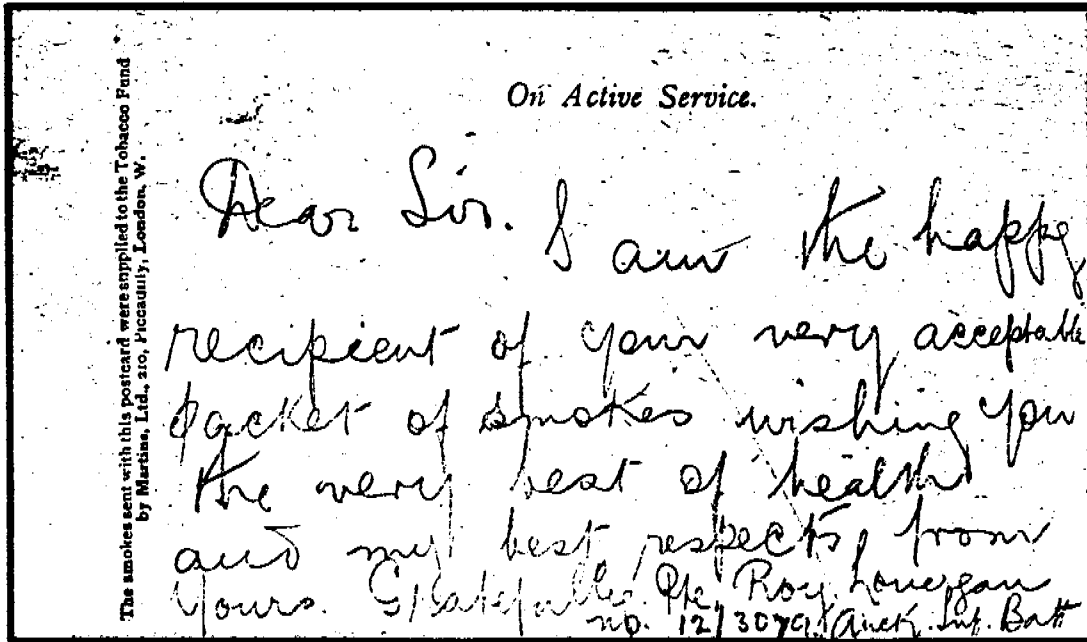 On Active Service.
The smokes sent with this postcard were supplied to the Tobacco Fund
by Martins, Ltd., 210, Piccadilly, London, W.
Dear Sir. I am the happy
recipient of your very acceptable
packet of smokes wishing you
the very best of health
and my best respects, from
Yours. Gratefully Pte Roy Lonergan
no. 12/3079. Auck. Inf. Batt